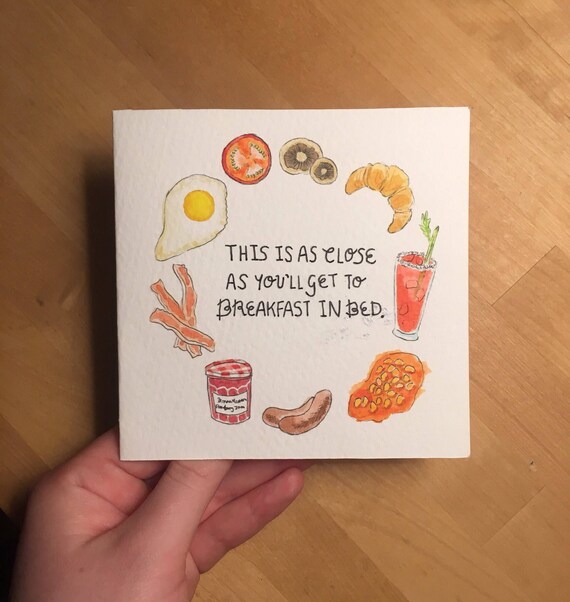 THIS IS AS CLOSE
AS YOU'LL GET TO
BREAKFAST IN BED.